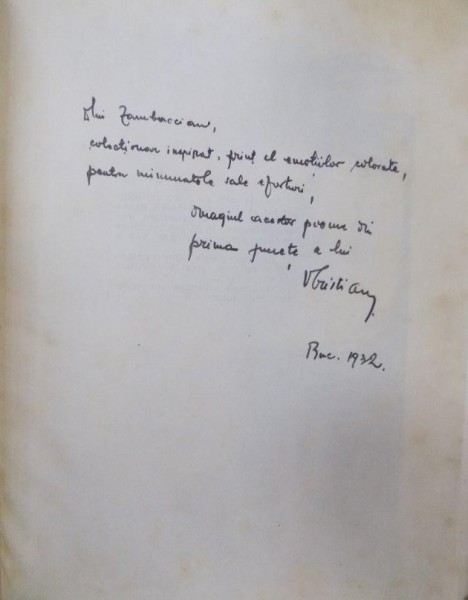 Dlui Zambaccian,
colecționar inspirat, prinț el emoțiilor colorate,
pentru minunatele sale eforturi,
omagiul acestor poeme din
prima tinerețe a lui
VCristian
Buc. 1932.